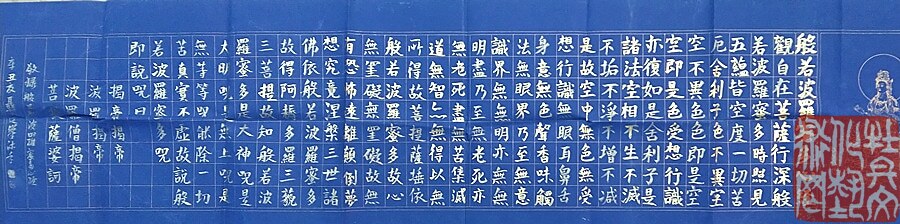 般若波羅
觀自在菩薩行深般
若波羅蜜多時照見
五蘊皆空度一切苦
厄舍利子色不異空
空不異色色即是空
空即是色受想行識
亦復如是舍利子是
諸法空相不生不滅
不垢不淨不增不減
是故空中無色無受
想行識無眼耳鼻舌
身意無色聲香味觸
法無眼界乃至無意
識界無無明亦無無
明盡乃至無老死亦
無老死盡無苦集滅
道無智亦無得以無
所得故菩提薩埵依
般若波羅蜜多故心
無罣礙無罣礙故無
有恐怖遠離顛倒夢
想究竟涅槃三世諸
佛依般若波羅蜜多
故得阿耨多羅三藐
三菩提故知般若波
羅蜜多是大神咒是
大明咒是無上咒是
無等等咒能除一切
苦真實不虛故說般
若波羅蜜多咒
即說咒曰
揭帝揭帝
波羅揭帝
波羅僧揭帝
菩提薩婆訶
敬錄般
辛丑